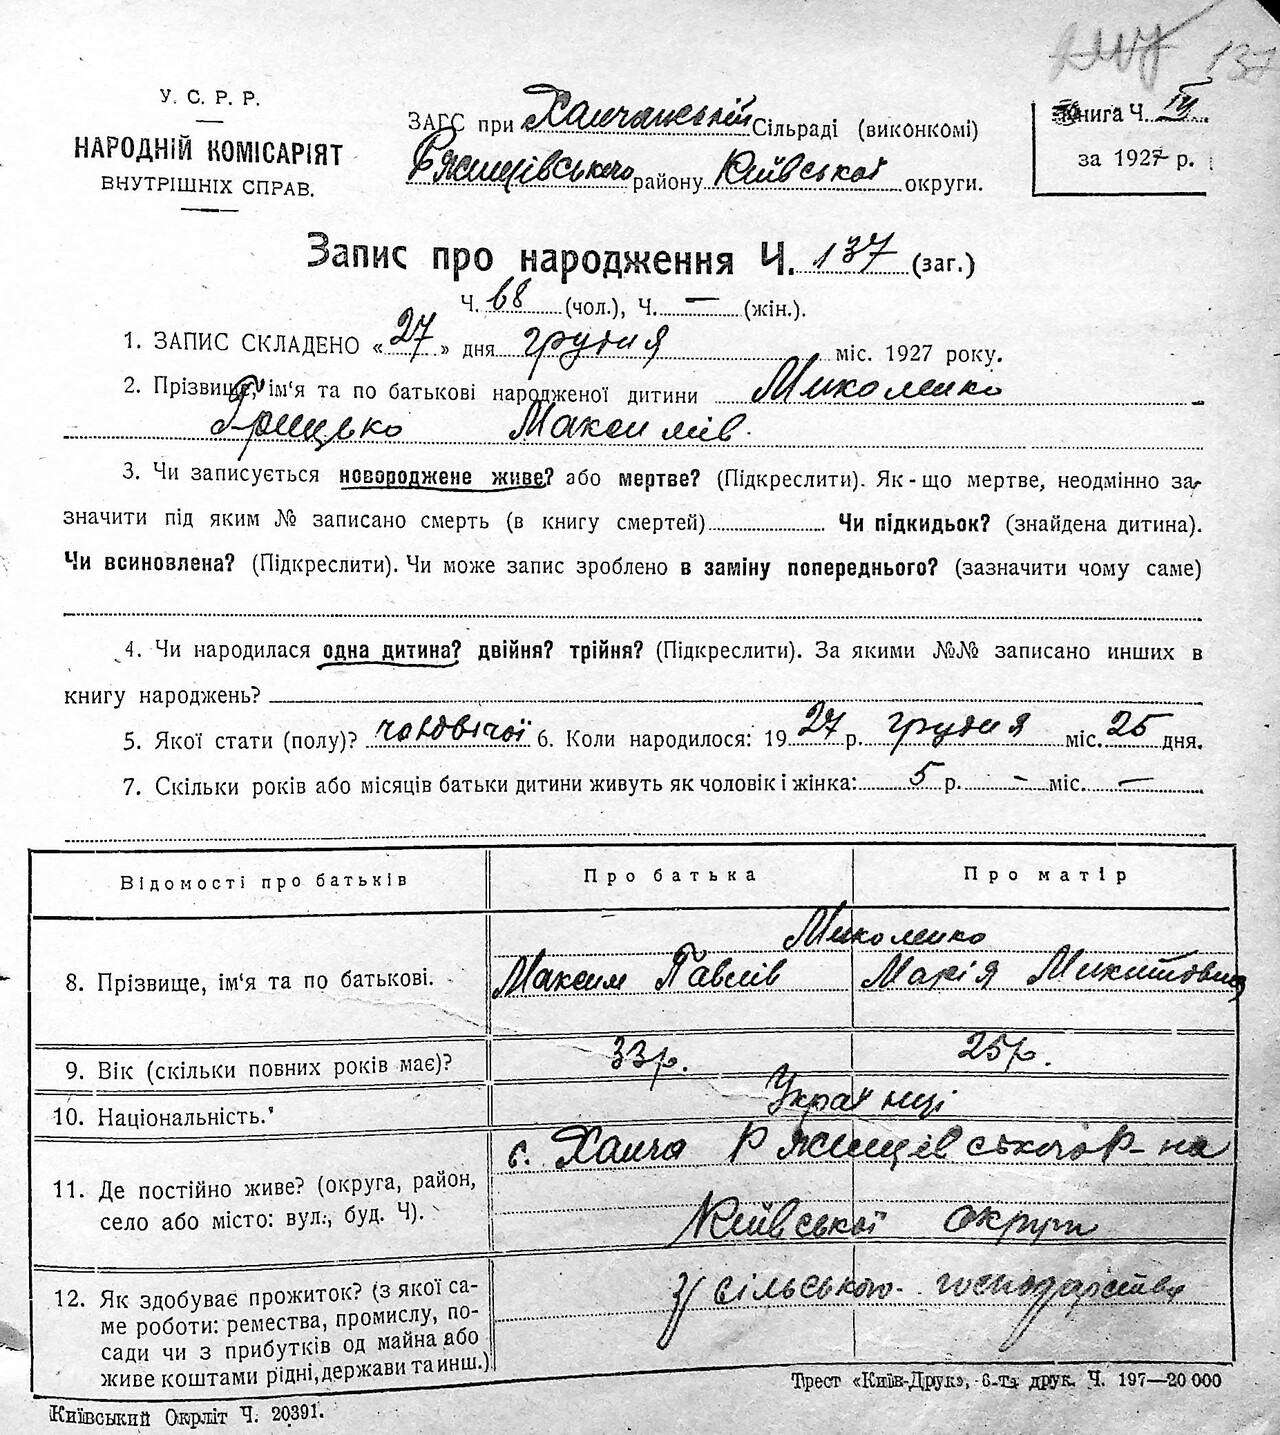 137
У. С. Р. Р.
НАРОДНІЙ КОМІСАРІЯТ
ВНУТРІШНІХ СПРАВ.
ЗАГС при Халчанській Сільраді (виконкомі)
Ржищівського району Київської округи.
Книга Ч. IV
за 1927 р.
Запис про народження Ч. 137 (заг.)
Ч. 68 (чол.), Ч. — (жін.).
1. ЗАПИС СКЛАДЕНО «27» дня грудня міс. 1927 року.
2. Прізвище, ім'я та по батькові народженої дитини Миколенко
Грицько Максимів.
3. Чи записується новороджене живе? або мертве? (Підкреслити). Як-що мертве, неодмінно за-
значити під яким № записано смерть (в книгу смертей) Чи підкидьок? (знайдена дитина).
Чи всиновлена? (Підкреслити). Чи може запис зроблено в заміну попереднього? (зазначити чому саме)
4. Чи народилася одна дитина? двійня? трійня? (Підкреслити). За якими №№ записано инших в
книгу народжень?
5. Якої стати (полу)? чоловічої 6. Коли народилося: 1927 р. грудня міс. 25 дня.
7. Скільки років або місяців батьки дитини живуть як чоловік і жінка: 5 р. — міс. —
Відомості про батьків Про батька Про матір
Миколенко
8. Прізвище, ім'я та по батькові. Максим Павлів Марія Микитовна
9. Вік (скільки повних років має)? 33р. 25р.
10. Національність. Українці
11. Де постійно живе? (округа, район,
село або місто: вул., буд. Ч). с. Халча Ржищівського Р-на
Київської округи
12. Як здобуває прожиток? (з якої са-
ме роботи: ремества, промислу, по-
сади чи з прибутків од майна або
живе коштами рідні, держави та инш.) З сільського господарства
Трест «Київ-Друк», 6-та друк. Ч. 197—20 000
Київський Окрліт Ч. 20391.